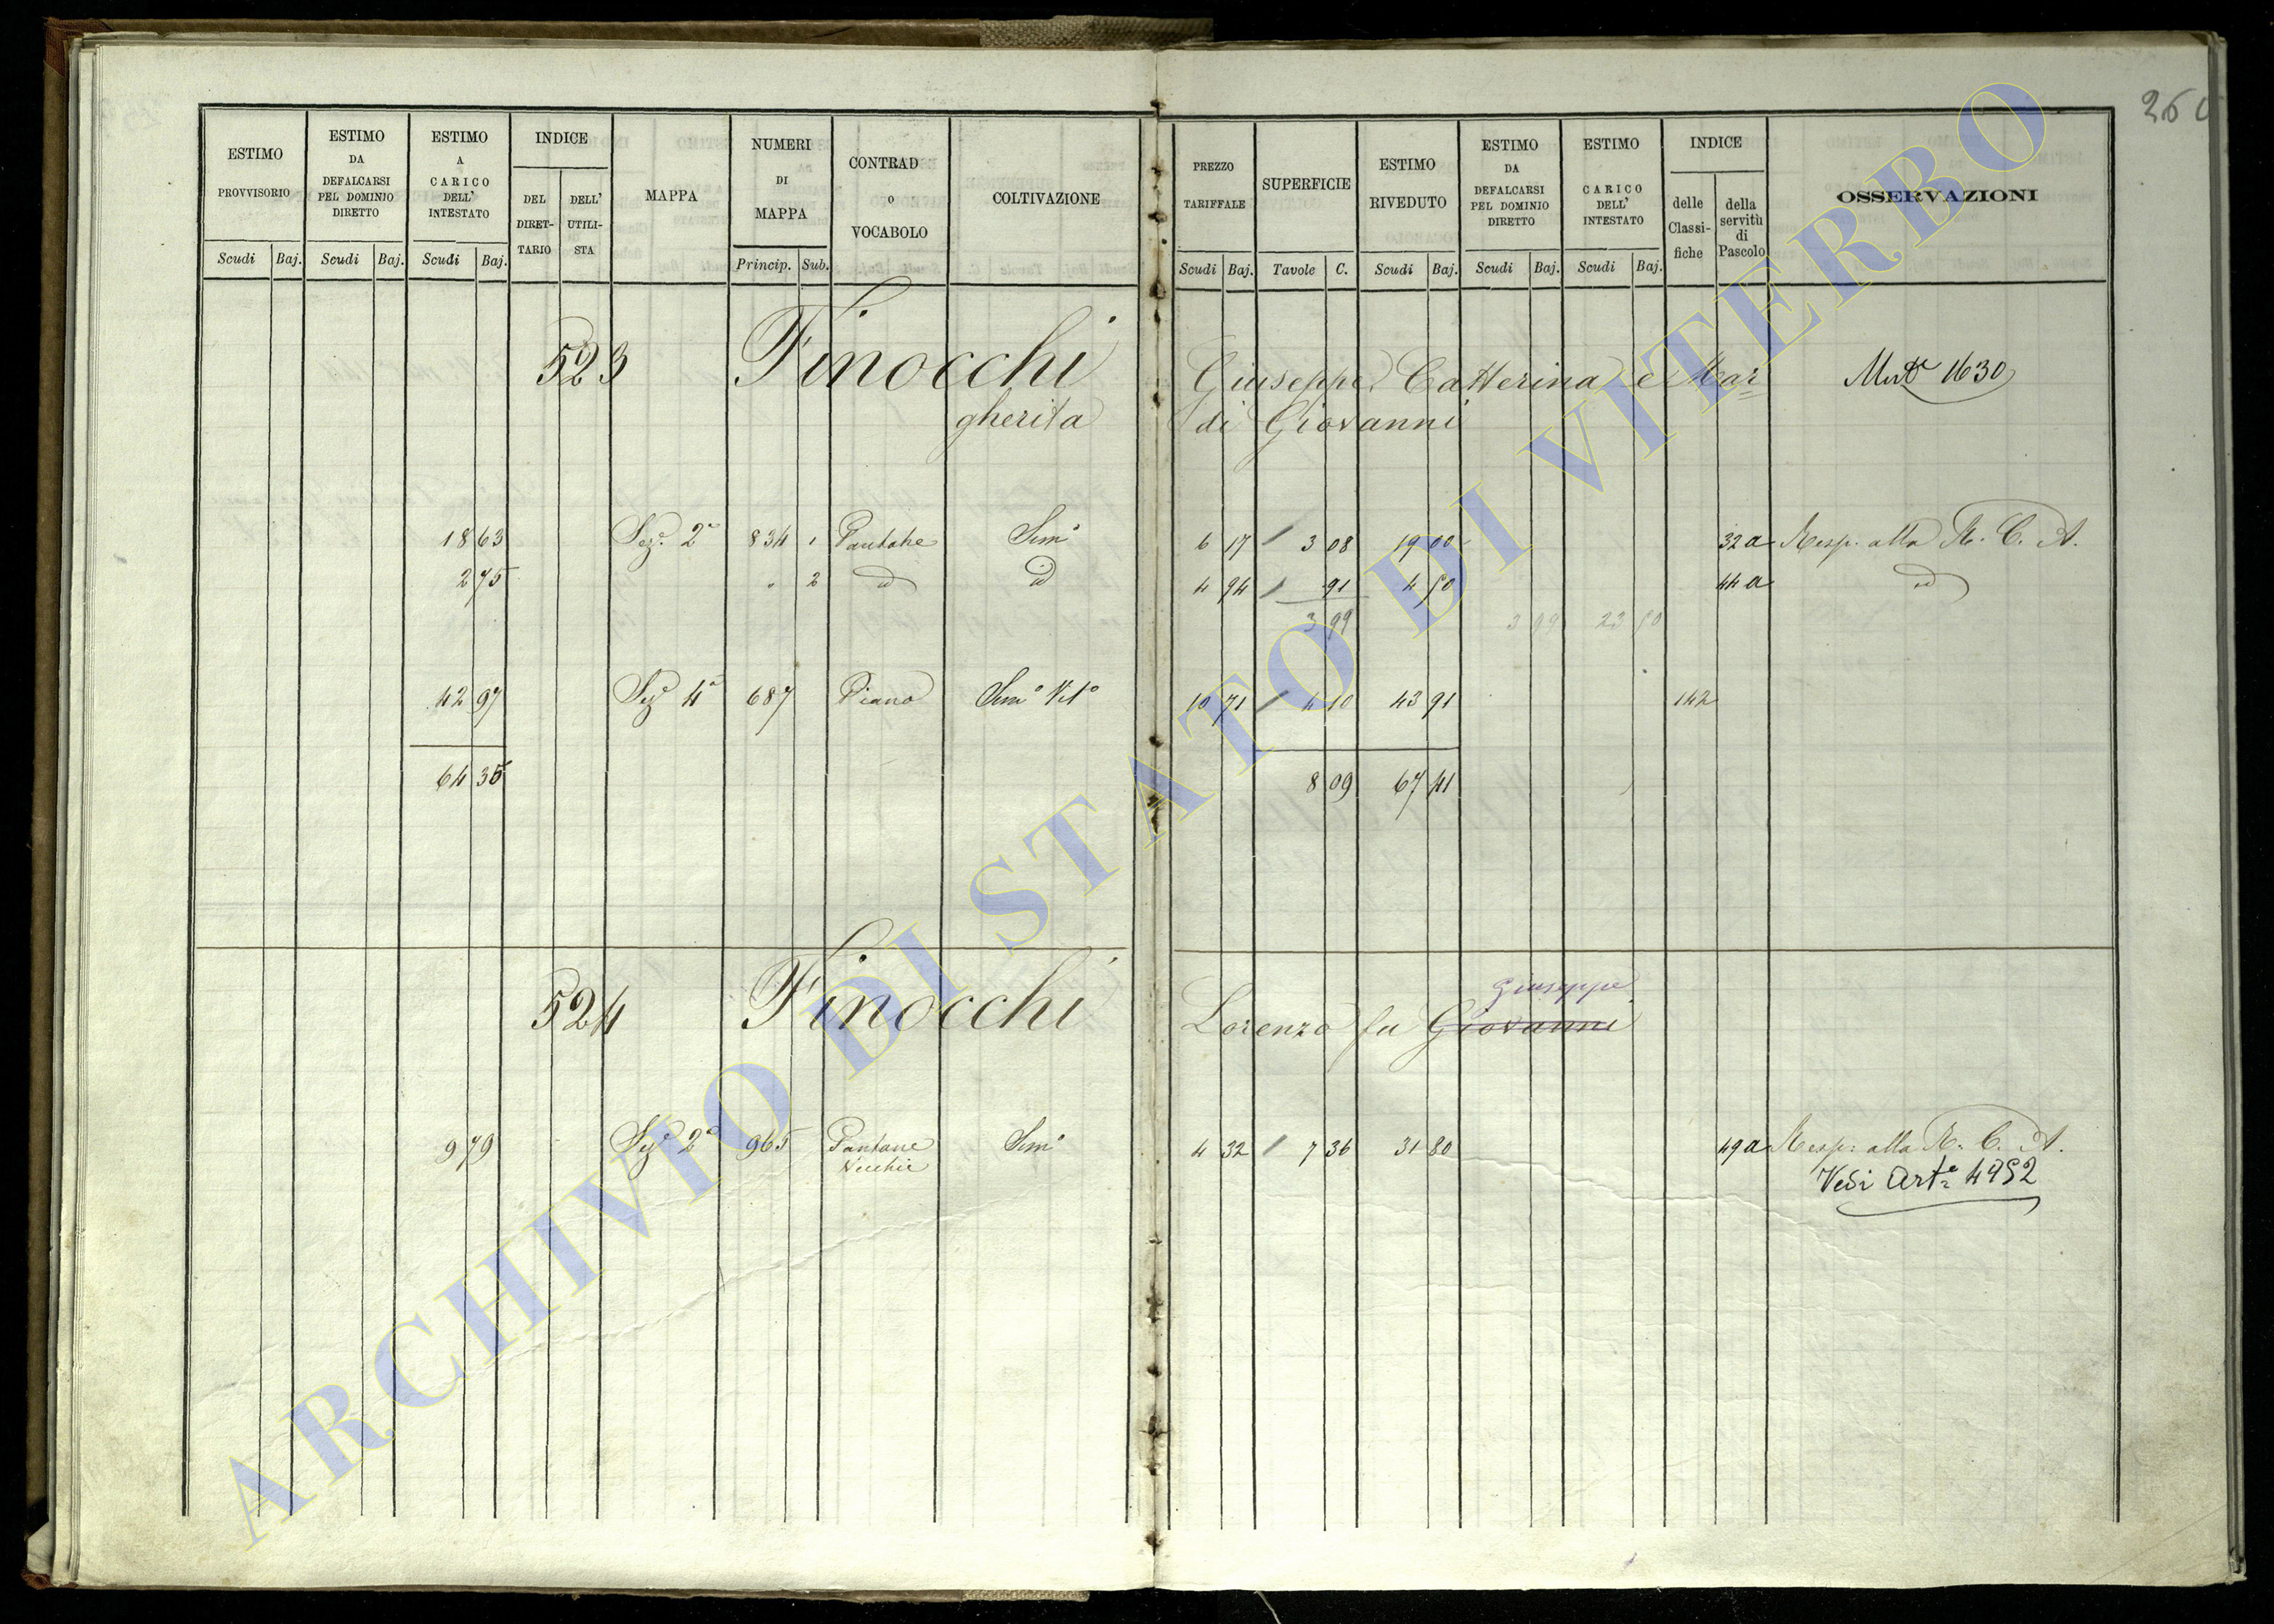 ESTIMO PROVVISORIO Scudi Baj.
ESTIMO DA DEFALCARSI PEL DOMINIO DIRETTO Scudi Baj.
ESTIMO A CARICO DELL' INTESTATO Scudi Baj.
INDICE DEL DIRET-TARIO DELL' UTILI-STA
MAPPA
NUMERI DI MAPPA Princip. Sub.
CONTRAD o VOCABOLO
COLTIVAZIONE
PREZZO TARIFFALE Scudi Baj.
SUPERFICIE Tavole C.
ESTIMO RIVEDUTO Scudi Baj.
ESTIMO DA DEFALCARSI PEL DOMINIO DIRETTO Scudi Baj.
ESTIMO CARICO DELL' INTESTATO Scudi Baj.
INDICE delle Classi-fiche della servitù di Pascolo
OSSERVAZIONI
523 Finocchi Giuseppe, Catterina e Mar
gherita di Giovanni
1630
18 63 Sez. 2a 834 1 Pantane Sem° 6 17 3 08 19 00 32 a Resp. alla R. C. A.
2 75 " 2 id id 4 94 91 4 50 44 a id
3 99 3 99 23 50
42 97 Sez 4a 687 Piano Sem° Vit° 10 71 4 10 43 91 142
64 35 8 09 67 41
524 Finocchi Lorenzo fu Giovanni
Giuseppe
9 79 Sez 2a 965 Pantane Vecchie Sem° 4 32 7 36 31 80 49 a Resp. alla R. C. A.
Vedi Art° 4952
ARCHIVIO DI STATO DI VITERBO